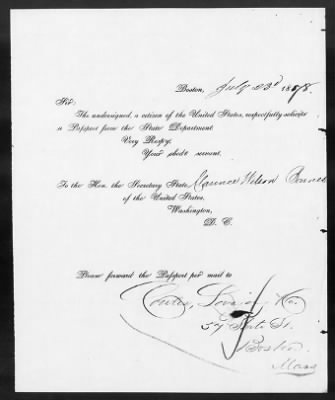 Boston, July 23d 1878.
Sir:
The undersigned, a citizen of the United States, respectfully solicits
a Passport from the State Department.
Very Respy.
Your obdt servant.
To the Hon. the Secretary State, Clarence Wilson
of the United States,
Washington,
D. C.
Please forward the Passport per mail to
Co.
57 State St.
Boston
Mass